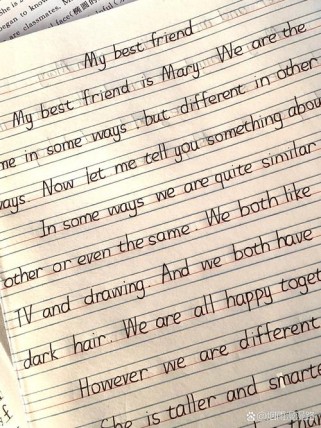 She is
began to know
are classmates. M
My best friend
My best friend is Mary. We are the
me in some ways, but different in other
ways. Now let me tell you something abou
In some ways we are quite similar
other or even the same. We both like
TV and drawing. And we both have
dark hair. We are all happy toget
However we are different
She is taller and smarte
than